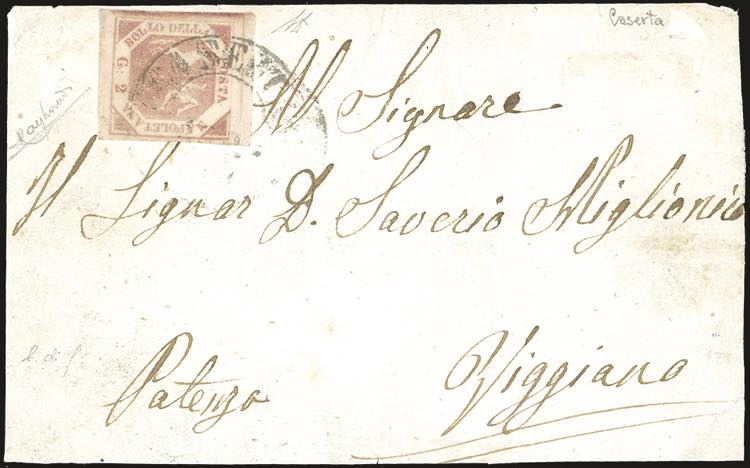 Caserta
BOLLO DELLA
POSTA
NAPOLETANA
G. 2
Al Signore
Il Signor D. Saverio Miglionico
Potenza
Viggiano